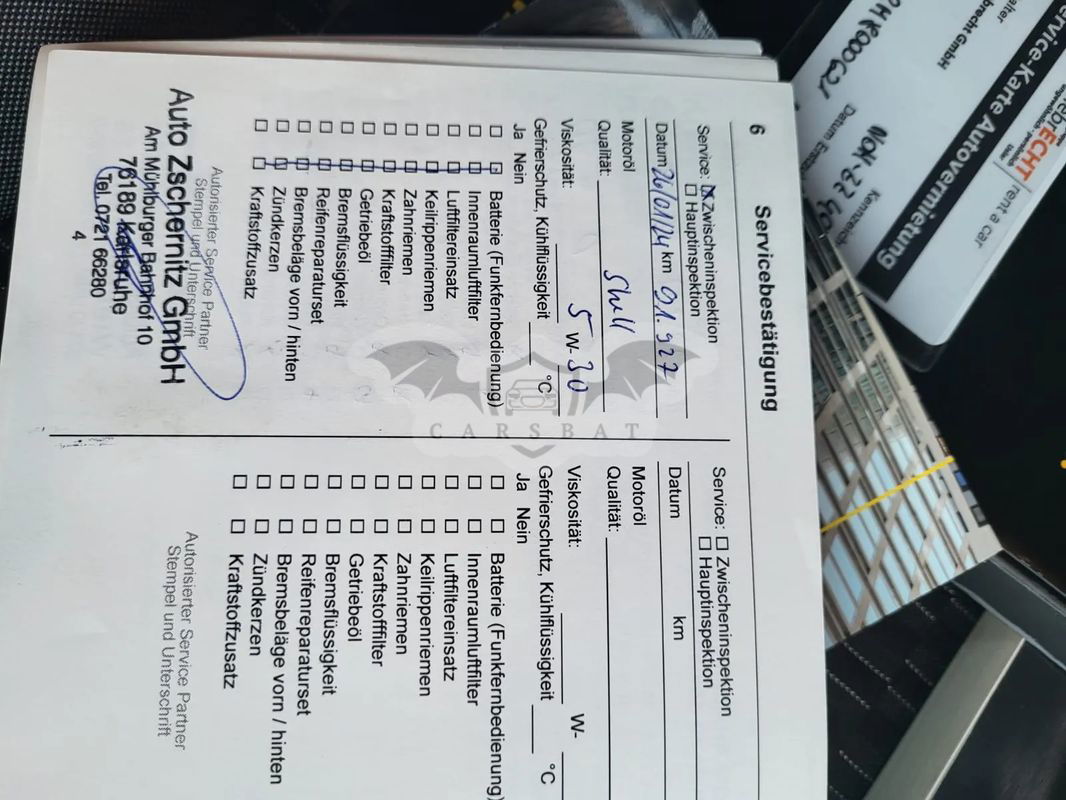 6 Servicebestätigung
Service: ☒ Zwischeninspektion
☐ Hauptinspektion
Datum 26/01/24 km 91.927
Motoröl
Qualität: Shell
Viskosität: 5 W- 30
Gefrierschutz, Kühlflüssigkeit °C
Ja Nein
Batterie (Funkfernbedienung)
Innenraumluftfilter
Luftfiltereinsatz
Keilrippenriemen
Zahnriemen
Kraftstofffilter
Getriebeöl
Bremsflüssigkeit
Reifenreparaturset
Bremsbeläge vorn / hinten
Zündkerzen
Kraftstoffzusatz
Autorisierter Service Partner
Stempel und Unterschrift
Auto Zschernitz GmbH
Am Mühlburger Bahnhof 10
76189 Karlsruhe
Tel. 0721 66280
4
Service: ☐ Zwischeninspektion
☐ Hauptinspektion
Datum km
Motoröl
Qualität:
Viskosität: W-
Gefrierschutz, Kühlflüssigkeit °C
Ja Nein
Batterie (Funkfernbedienung)
Innenraumluftfilter
Luftfiltereinsatz
Keilrippenriemen
Zahnriemen
Kraftstofffilter
Getriebeöl
Bremsflüssigkeit
Reifenreparaturset
Bremsbeläge vorn / hinten
Zündkerzen
Kraftstoffzusatz
Autorisierter Service Partner
Stempel und Unterschrift
CARSBAT
rent a car
Service-Karte Autovermietung
Kennzeich
brecht GmbH
Datum